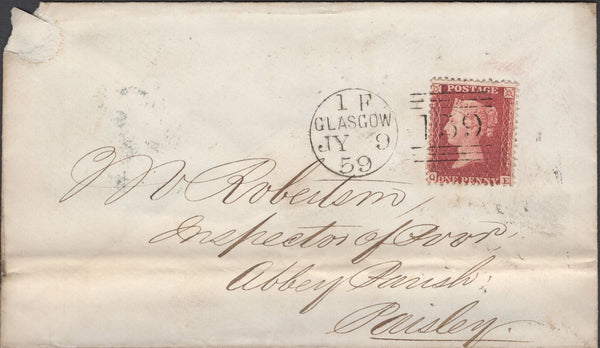 1 F
GLASGOW
JY 9
59
POSTAGE
159
ONE PENNY
Mr Robertson,
Inspector of Poor,
Abbey Parish,
Paisley.